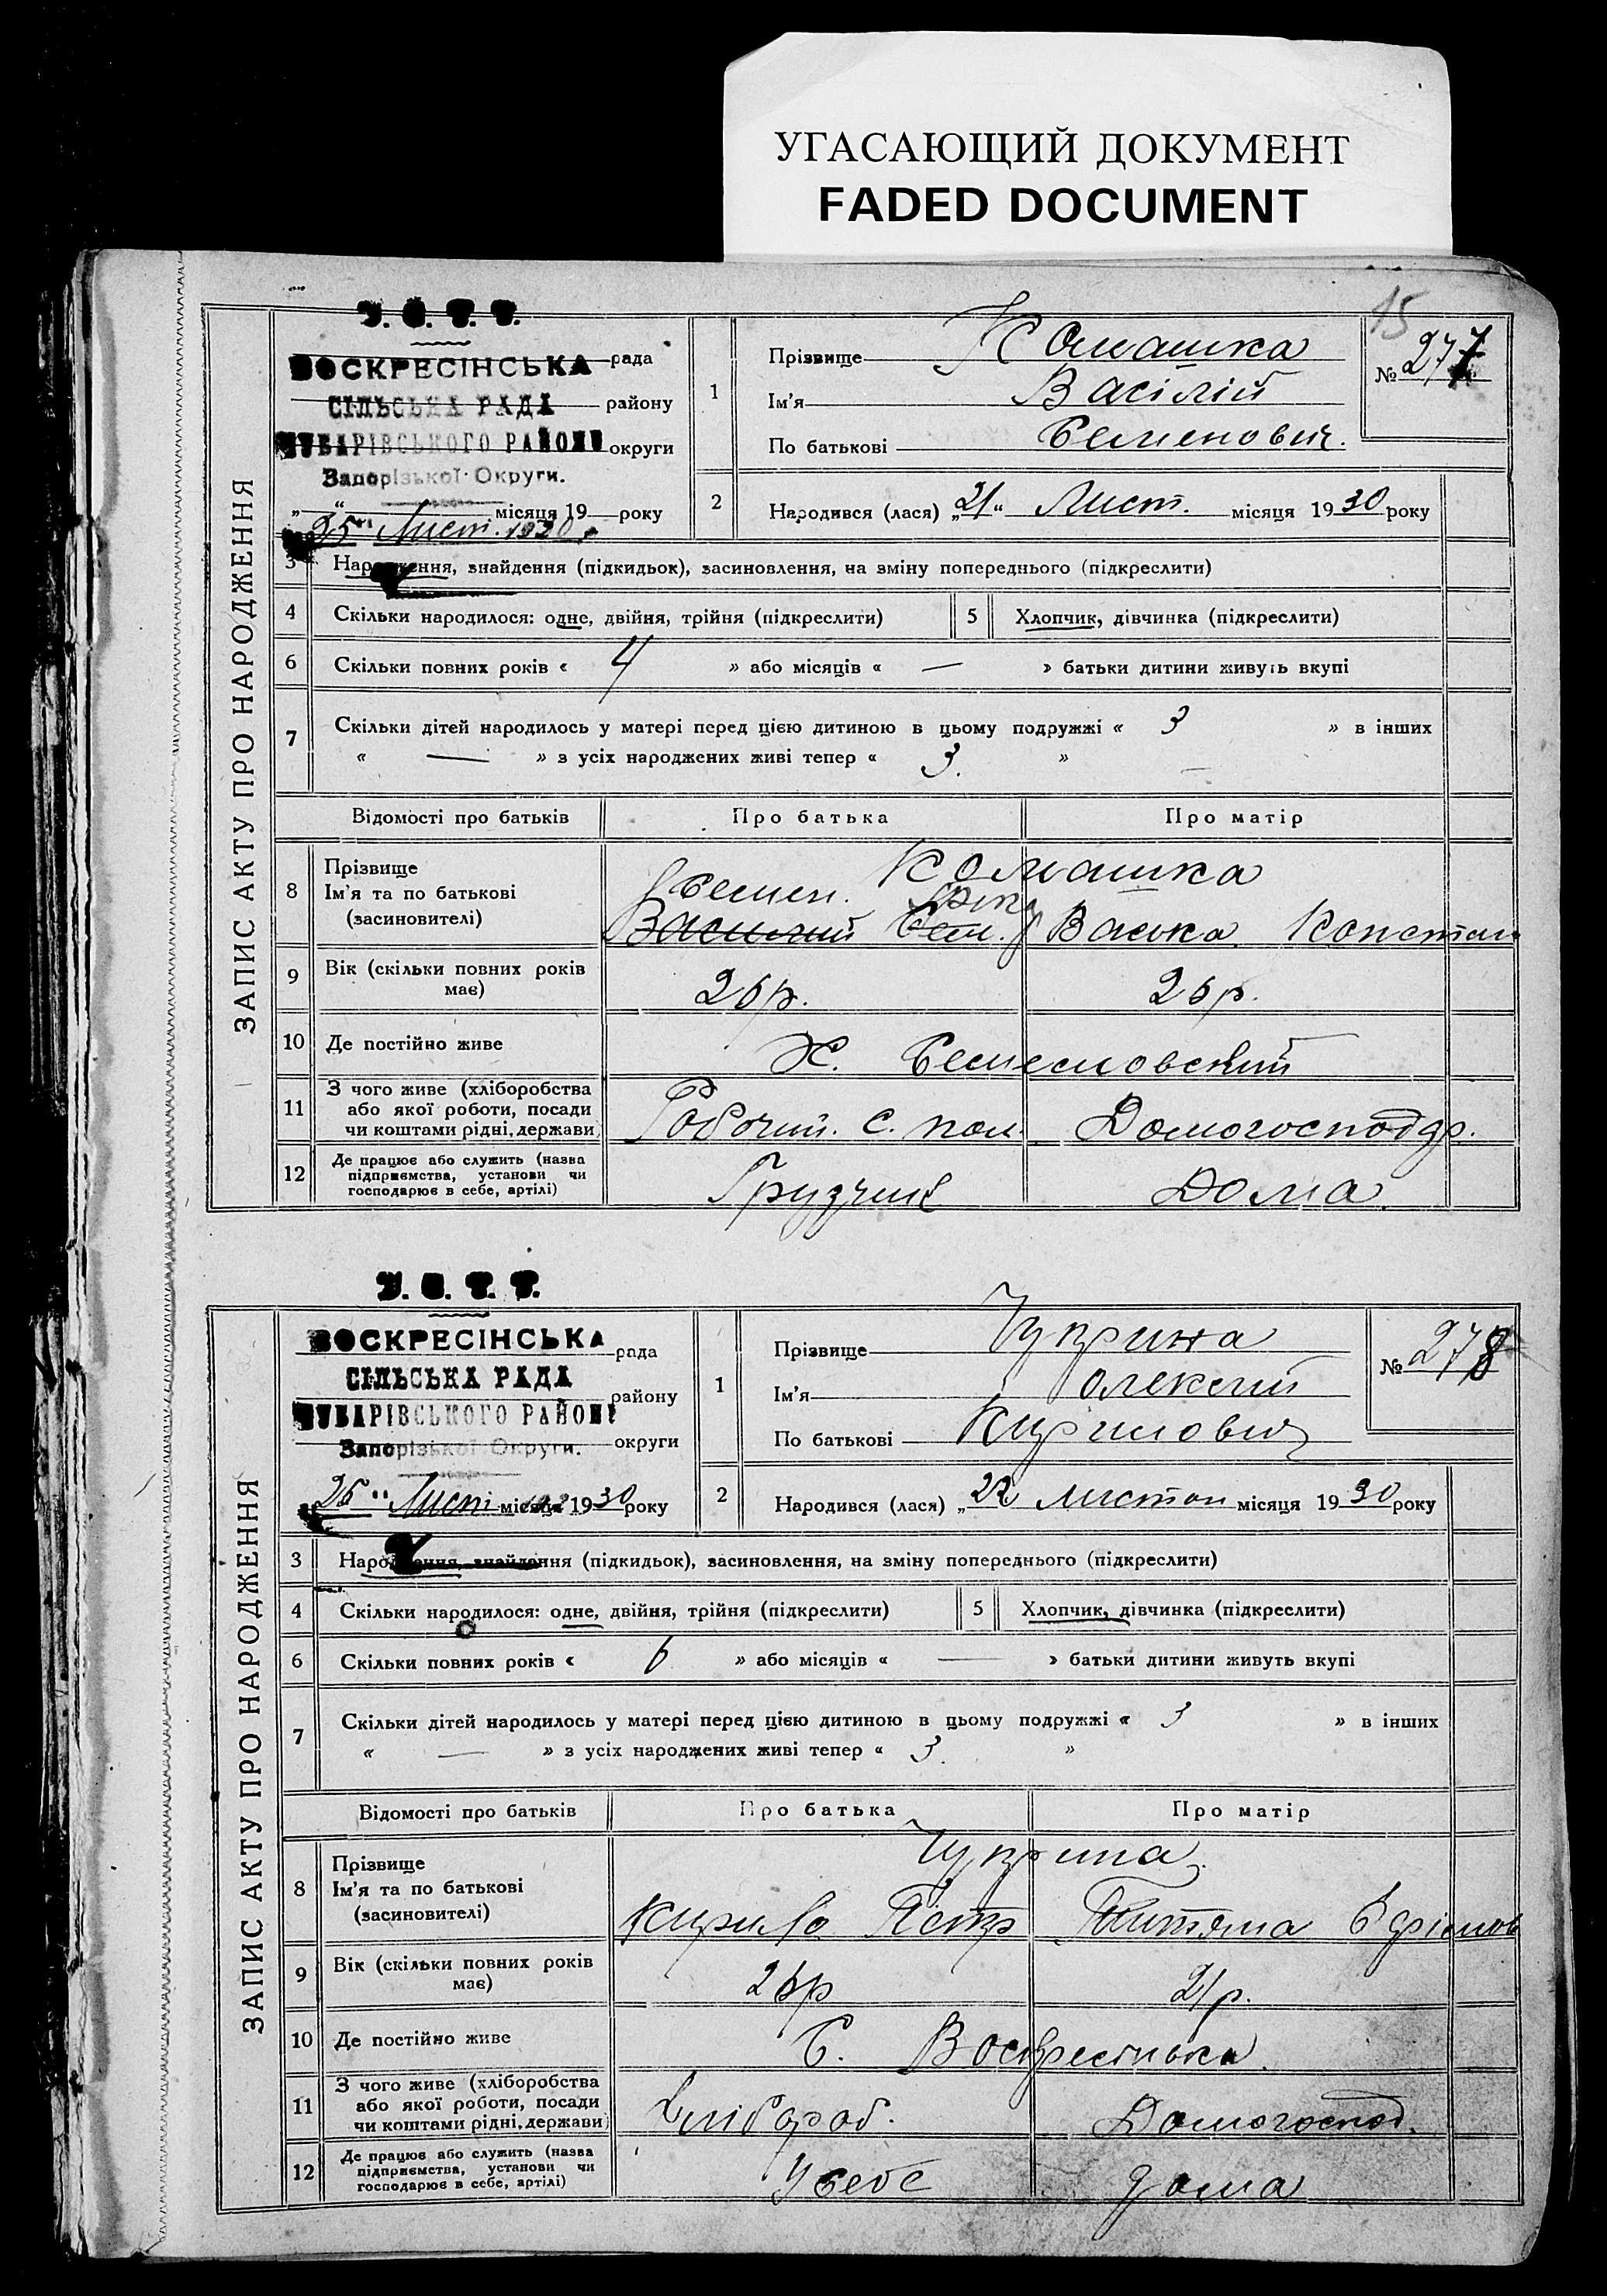 УГАСАЮЩИЙ ДОКУМЕНТ
FADED DOCUMENT
15
ЗАПИС АКТУ ПРО НАРОДЖЕННЯ
У. С. Р. Р.
ВОСКРЕСІНСЬКА рада
СІЛЬСЬКА РАДА району
ЧУБАРІВСЬКОГО РАЙОНУ округи
Запорізької Округи.
„ “ місяця 19 року
25" Лист. 1930
1 Прізвище Комашка
Ім'я Васілій
По батькові Семенович.
№ 277
2 Народився (лася) „21“ Лист. місяця 1930 року
3 Народження, знайдення (підкидьок), засиновлення, на зміну попереднього (підкреслити)
4 Скільки народилося: одне, двійня, трійня (підкреслити) 5 Хлопчик, дівчинка (підкреслити)
6 Скільки повних років « 4 » або місяців « — » батьки дитини живуть вкупі
7 Скільки дітей народилось у матері перед цією дитиною в цьому подружжі « 3 » в інших
« — » з усіх народжених живі тепер « 3. »
Відомості про батьків Про батька Про матір
8 Прізвище Комашка
Ім'я та по батькові Семен.
(засиновителі) Василий Сем. Васька Констан
9 Вік (скільки повних років має) 26р. 26р.
10 Де постійно живе Х.
11 З чого живе (хліборобства
або якої роботи, посади
чи коштами рідні, держави) Робочий. с. пол. Домогосподар.
12 Де працює або служить (назва
підприємства, установи чи
господарює в себе, артілі) Грузчик Дома.
ЗАПИС АКТУ ПРО НАРОДЖЕННЯ
У. С. Р. Р.
ВОСКРЕСІНСЬКА рада
СІЛЬСЬКА РАДА району
ЧУБАРІВСЬКОГО РАЙОНУ
Запорізької Округи. округи
„25" Лист місяця 1930 року
1 Прізвище Чуприна
Ім'я Олексий
По батькові Кирилович
№ 278
2 Народився (лася) „22 листоп місяця 1930 року
3 Народження, знайдення (підкидьок), засиновлення, на зміну попереднього (підкреслити)
4 Скільки народилося: одне, двійня, трійня (підкреслити) 5 Хлопчик, дівчинка (підкреслити)
6 Скільки повних років « 6 » або місяців « — » батьки дитини живуть вкупі
7 Скільки дітей народилось у матері перед цією дитиною в цьому подружжі « 3 » в інших
« — » з усіх народжених живі тепер « 3. »
Відомості про батьків Про батька Про матір
8 Прізвище Чуприна
Ім'я та по батькові
(засиновителі) Кирило Петр Титяна Єфрімов
9 Вік (скільки повних років має) 26р 21р.
10 Де постійно живе С. Воскресінька.
11 З чого живе (хліборобства
або якої роботи, посади
чи коштами рідні, держави) Хлібороб. Домогоспод.
12 Де працює або служить (назва
підприємства, установи чи
господарює в себе, артілі) У себе дома